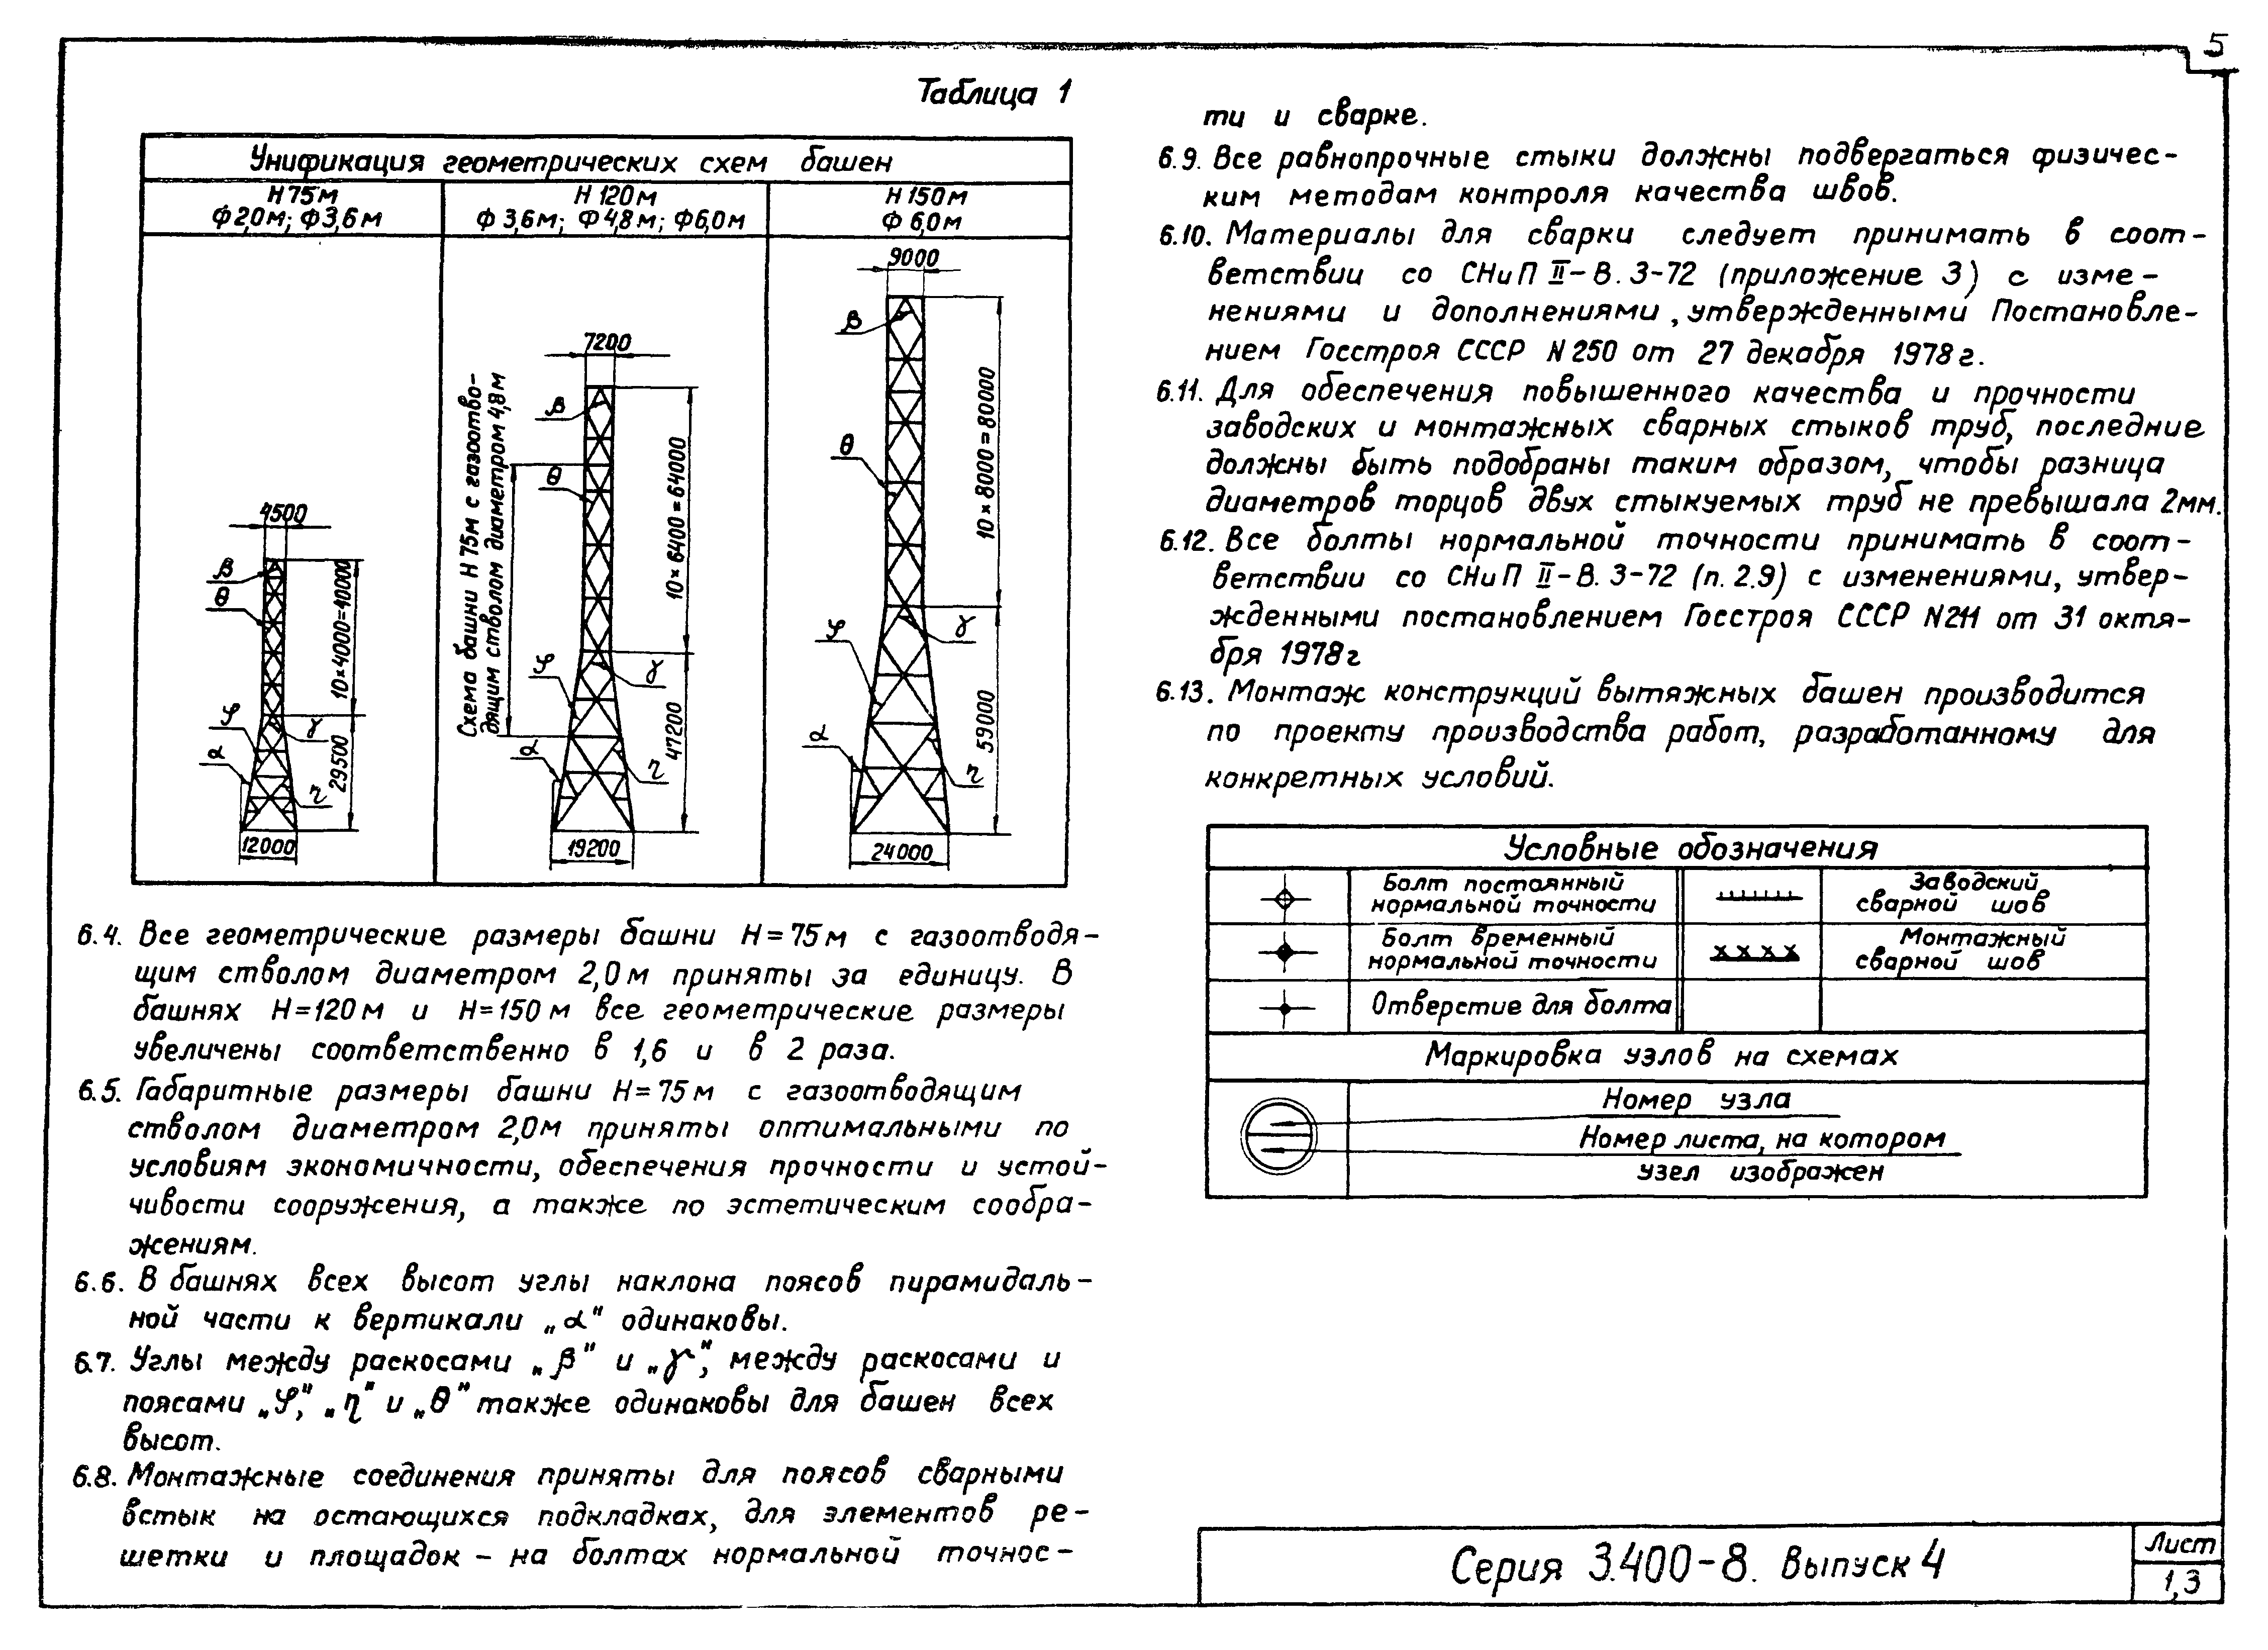 5
Таблица 1
Унификация геометрических схем башен
Н 75м
Ф2,0м; Ф3,6м
Н 120м
Ф 3,6м; Ф4,8м; Ф6,0м
Н 150м
Ф 6,0м
4500
β
θ
10×4000=40000
φ
γ
α
29500
η
12000
Схема башни Н 75м с газоотво-
дящим стволом диаметром 4,8м
7200
β
θ
10×6400=64000
φ
γ
α
47200
η
19200
9000
β
θ
10×8000=80000
φ
γ
α
59000
η
24000
6.4. Все геометрические размеры башни Н=75м с газоотводя-
щим стволом диаметром 2,0м приняты за единицу. В
башнях Н=120м и Н=150м все геометрические размеры
увеличены соответственно в 1,6 и в 2 раза.
6.5. Габаритные размеры башни Н=75м с газоотводящим
стволом диаметром 2,0м приняты оптимальными по
условиям экономичности, обеспечения прочности и устой-
чивости сооружения, а также по эстетическим сообра-
жениям.
6.6. В башнях всех высот углы наклона поясов пирамидаль-
ной части к вертикали „α" одинаковы.
6.7. Углы между раскосами „β" и „γ", между раскосами и
поясами „φ", „η" и „θ" также одинаковы для башен всех
высот.
6.8. Монтажные соединения приняты для поясов сварными
встык на остающихся подкладках, для элементов ре-
шетки и площадок - на болтах нормальной точнос-
ти и сварке.
6.9. Все равнопрочные стыки должны подвергаться физичес-
ким методам контроля качества швов.
6.10. Материалы для сварки следует принимать в соот-
ветствии со СНиП II-В.3-72 (приложение 3) с изме-
нениями и дополнениями, утвержденными Постановле-
нием Госстроя СССР N250 от 27 декабря 1978г.
6.11. Для обеспечения повышенного качества и прочности
заводских и монтажных сварных стыков труб, последние
должны быть подобраны таким образом, чтобы разница
диаметров торцов двух стыкуемых труб не превышала 2мм.
6.12. Все болты нормальной точности принимать в соот-
ветствии со СНиП II-В.3-72 (п.2.9) с изменениями, утвер-
жденными постановлением Госстроя СССР N211 от 31 октя-
бря 1978г
6.13. Монтаж конструкций вытяжных башен производится
по проекту производства работ, разработанному для
конкретных условий.
Условные обозначения
Болт постоянный
нормальной точности
Заводский
сварной шов
Болт временный
нормальной точности
Монтажный
сварной шов
Отверстие для болта
Маркировка узлов на схемах
Номер узла
Номер листа, на котором
узел изображен
Серия 3.400-8. Выпуск 4
Лист
1,3